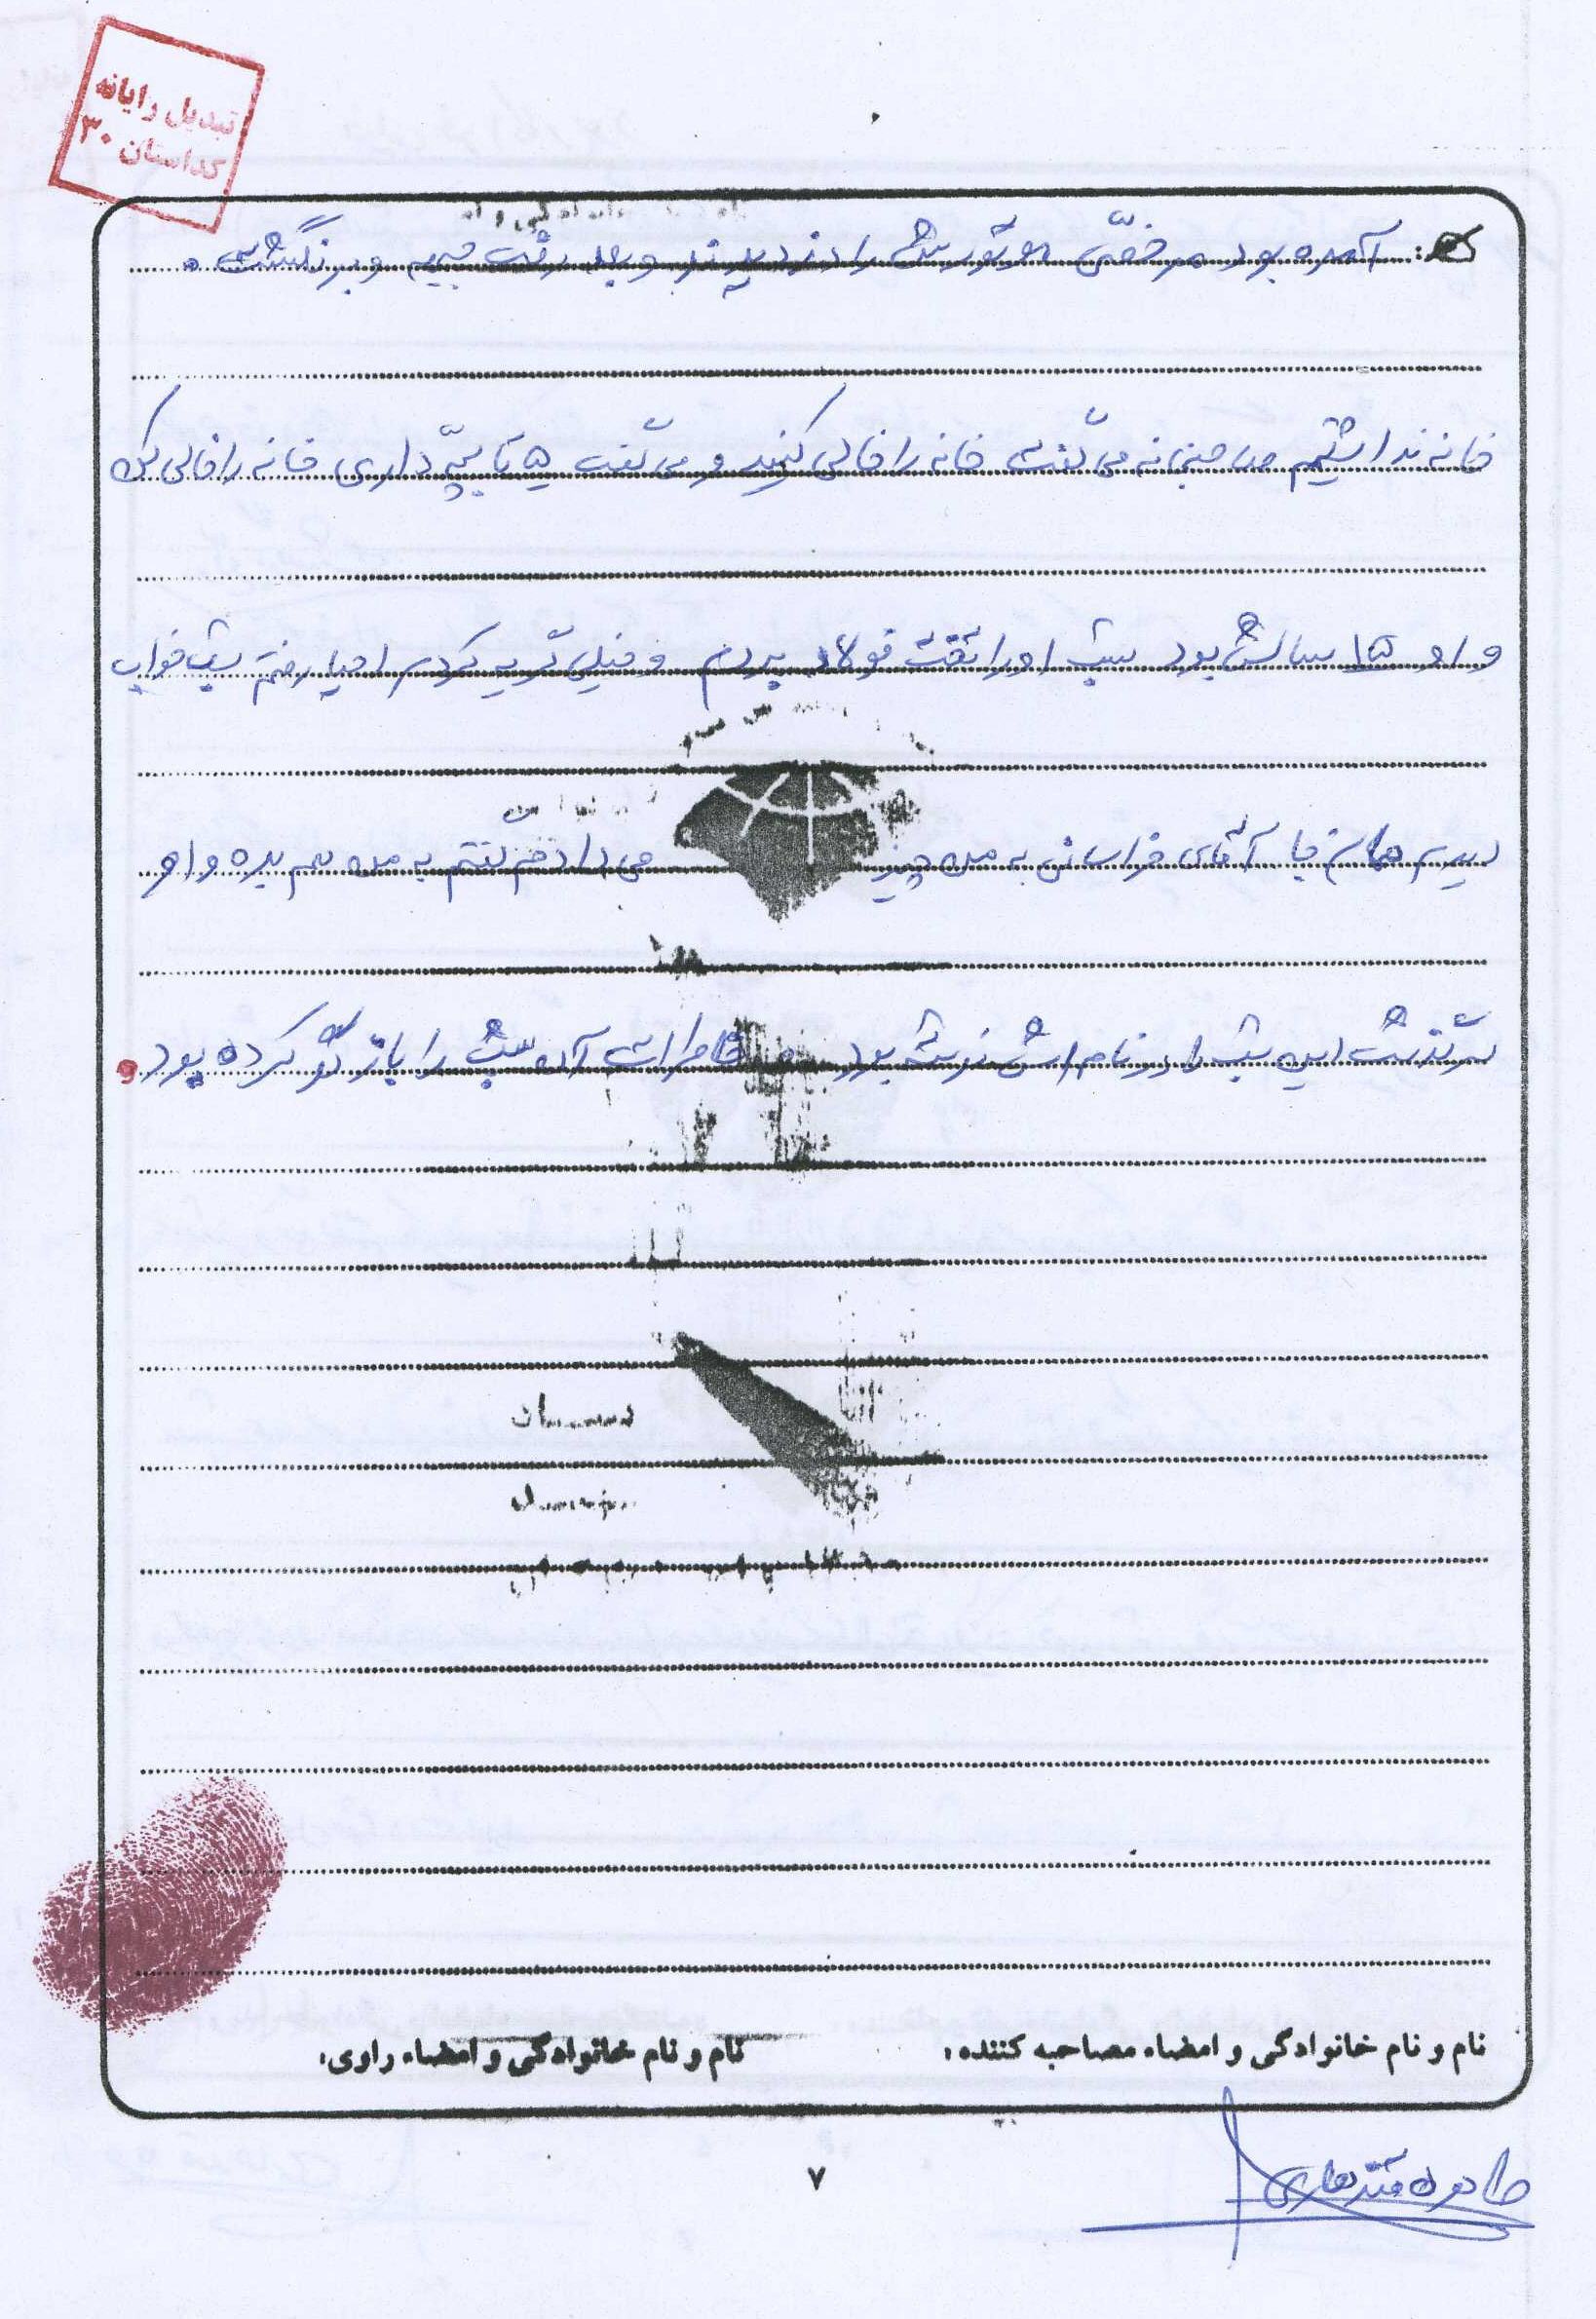 تبدیل رایانه
کداستان ۳۰
آمده بود مرخصی موتورش را دزدیدند و بعد رفت جبهه و برنگشت .
خانه نداشتیم صاحبخانه می گفت خانه را خالی کنید و می گفت ۵ تا بچّه داری خانه را خالی کن
و او ۱۵ سالش بود شب او را پشت فولاد بردم و خیلی گریه کردم احیا رفتم شب خواب
دیدم همان جا آقای خراسانی به من چیز می داد من گفتم به من هم بده و او
سرگذشت این شب را در نامه اش نوشته بود و خاطرات آن شب را بازگو کرده بود
نام و نام خانوادگی و امضاء مصاحبه کننده:
نام و نام خانوادگی و امضاء راوی:
۷
طاهره قندهاری